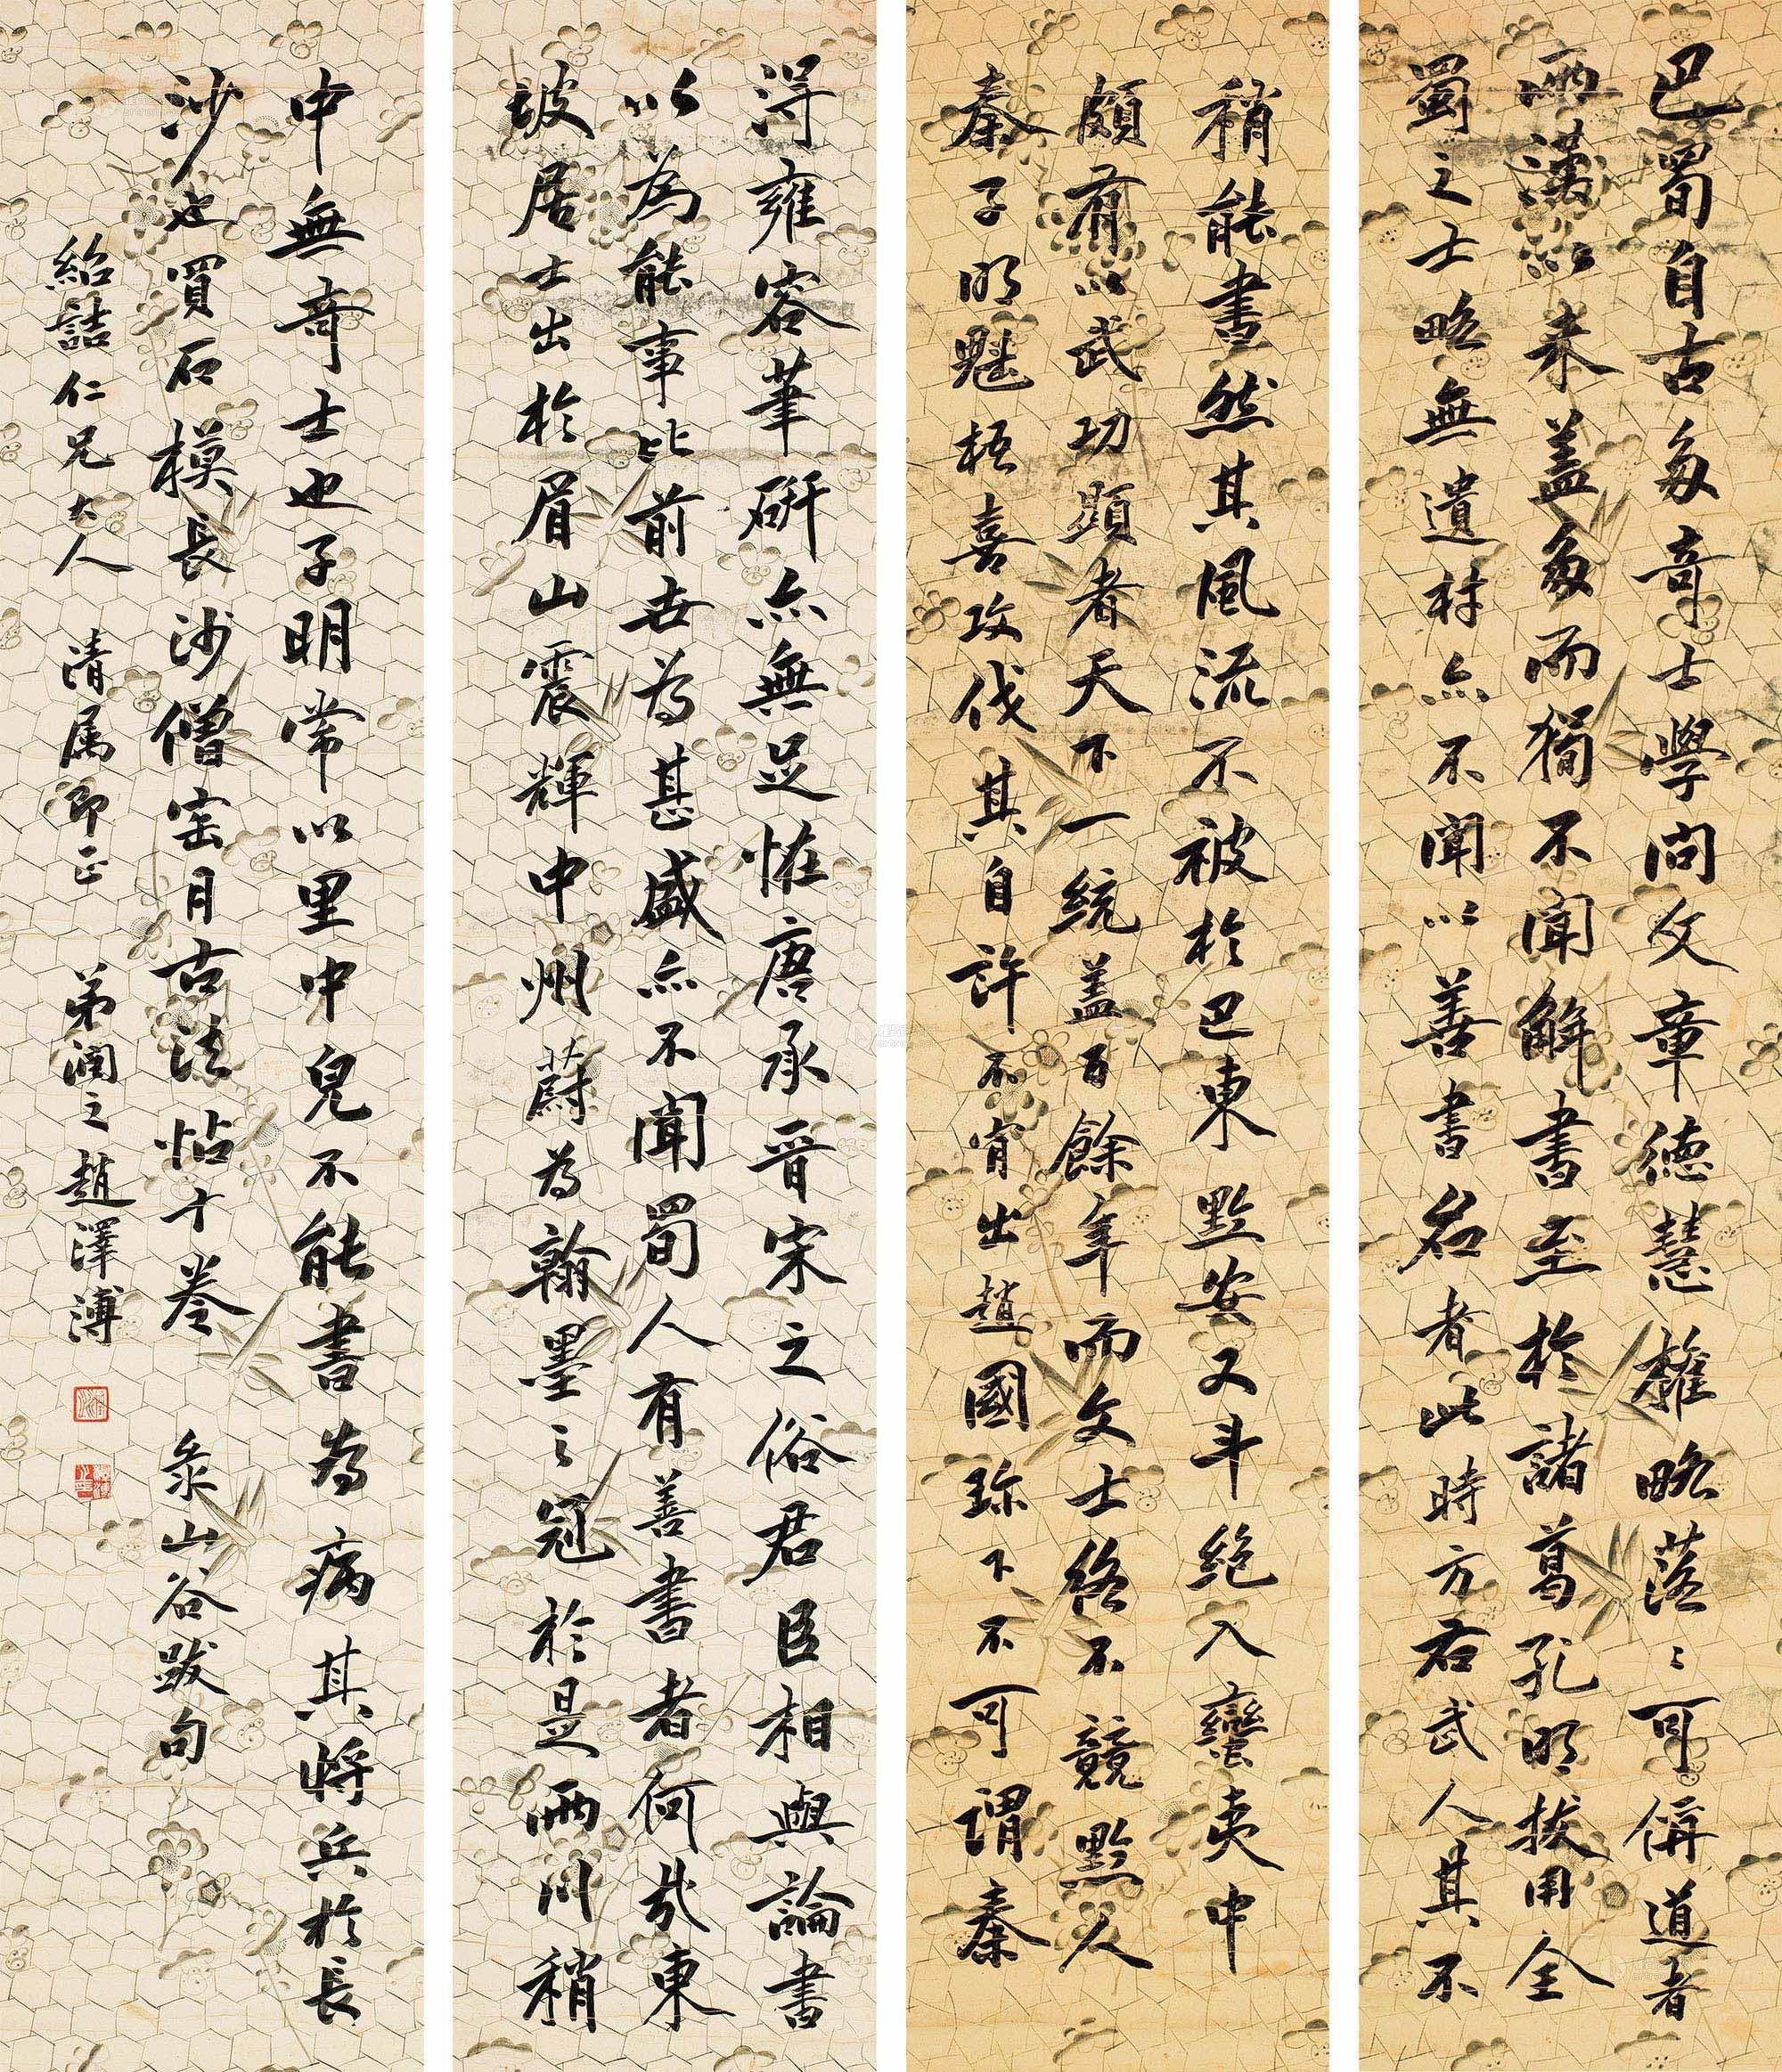 巴蜀自古多奇士學問文章德慧權略落〻可偁道者
兩漢以来蓋多而獨不聞解書至於諸葛孔明拔用全
蜀之士略無遺材亦不聞以善書名者此時方右武人其不
得雍容筆研亦無足怪唐承晉宋之俗君臣相與論書
以為能事比前世為甚盛亦不聞蜀人有善書者何哉東
坡居士出於眉山震輝中州蔚為翰墨之冠於是兩川稍
稍能書然其風流不被於巴東黔安又斗絶入蠻夷中
頗有以武功顯者天下一統蓋百餘年而文士終不競黔人
秦子明魁梧喜攻伐其自許不肯出趙國珍下不可謂秦
中無奇士也子明常以里中兒不能書為病其將兵於長
沙也買石模長沙僧寶月古法帖十卷 彔山谷跋句
紹喆仁兄大人 清屬即正 弟潤之趙澤溥